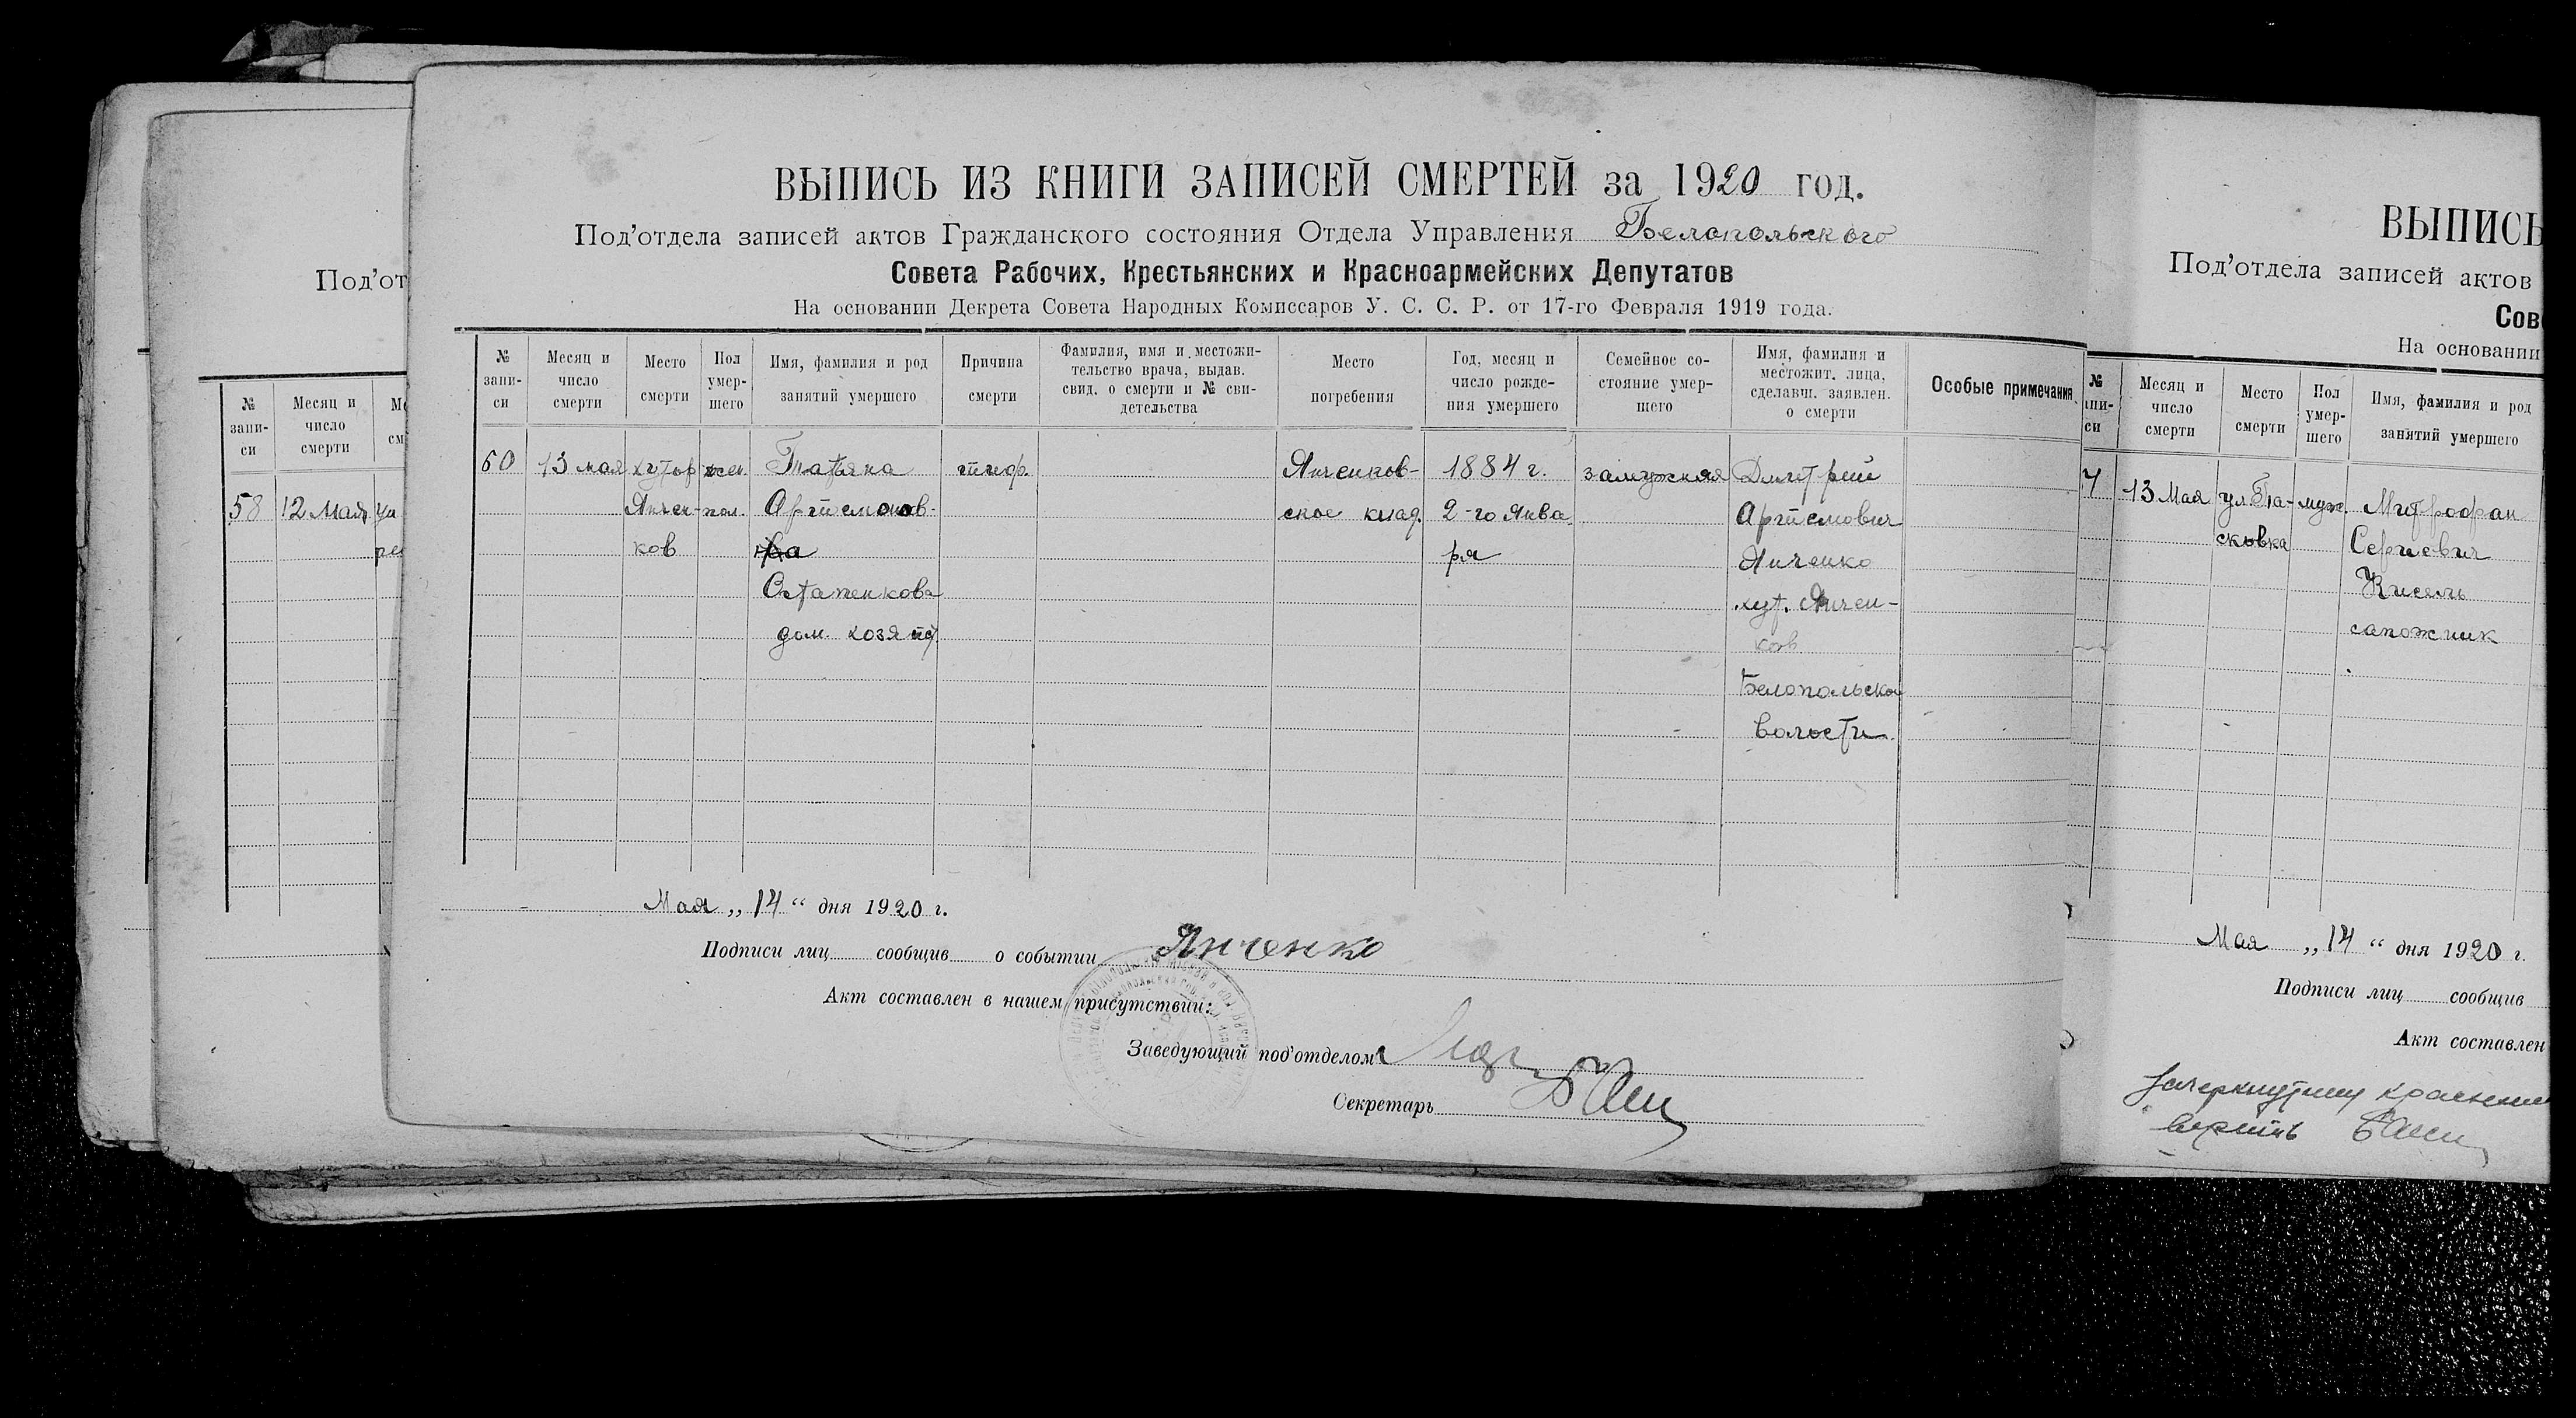 ВЫПИСЬ ИЗ КНИГИ ЗАПИСЕЙ СМЕРТЕЙ за 1920 год.
Под'отдела записей актов Гражданского состояния Отдела Управления Белопольского
Совета Рабочих, Крестьянских и Красноармейских Депутатов
На основании Декрета Совета Народных Комиссаров У. С. С. Р. от 17-го Февраля 1919 года.
№ запи-си
Месяц и число смерти
Место смерти
Пол умер-шего
Имя, фамилия и род занятий умершего
Причина смерти
Фамилия, имя и местожи-тельство врача, выдав. свид. о смерти и № сви-детельства
Место погребения
Год, месяц и число рожде-ния умершего
Семейное со-стояние умер-шего
Имя, фамилия и местожит. лица, сделавш. заявлен. о смерти
Особые примечания
60 13 мая хутор жен. Татьяна тиф. Янченков- 1884 г. замужняя Дмитрий
Янчен- пол. Артемонов- ское клад. 2-го янва Артемович
ков на ря Янченко
Остапенкова хут. Янчен-
дом. хозяйст. ков
Белопольской
волости.
Мая „ 14 “ дня 1920 г.
Подписи лиц сообщив о событии Янченко
Акт составлен в нашем присутствии:
Заведующий под'отделом
Секретарь
Под'от
№ запи-си
Месяц и число смерти
58 12 Мая
ВЫПИСЬ
Под'отдела записей актов
Сов
На основании
№
Месяц и число смерти
Место смерти
Пол умер-шего
Имя, фамилия и род занятий умершего
13 Мая ул. Па- муж. Митрофан
сковка Сергиевич
Кисель
сапожник
Мая „ 14 “ дня 1920 г.
Подписи лиц сообщив
Акт составлен